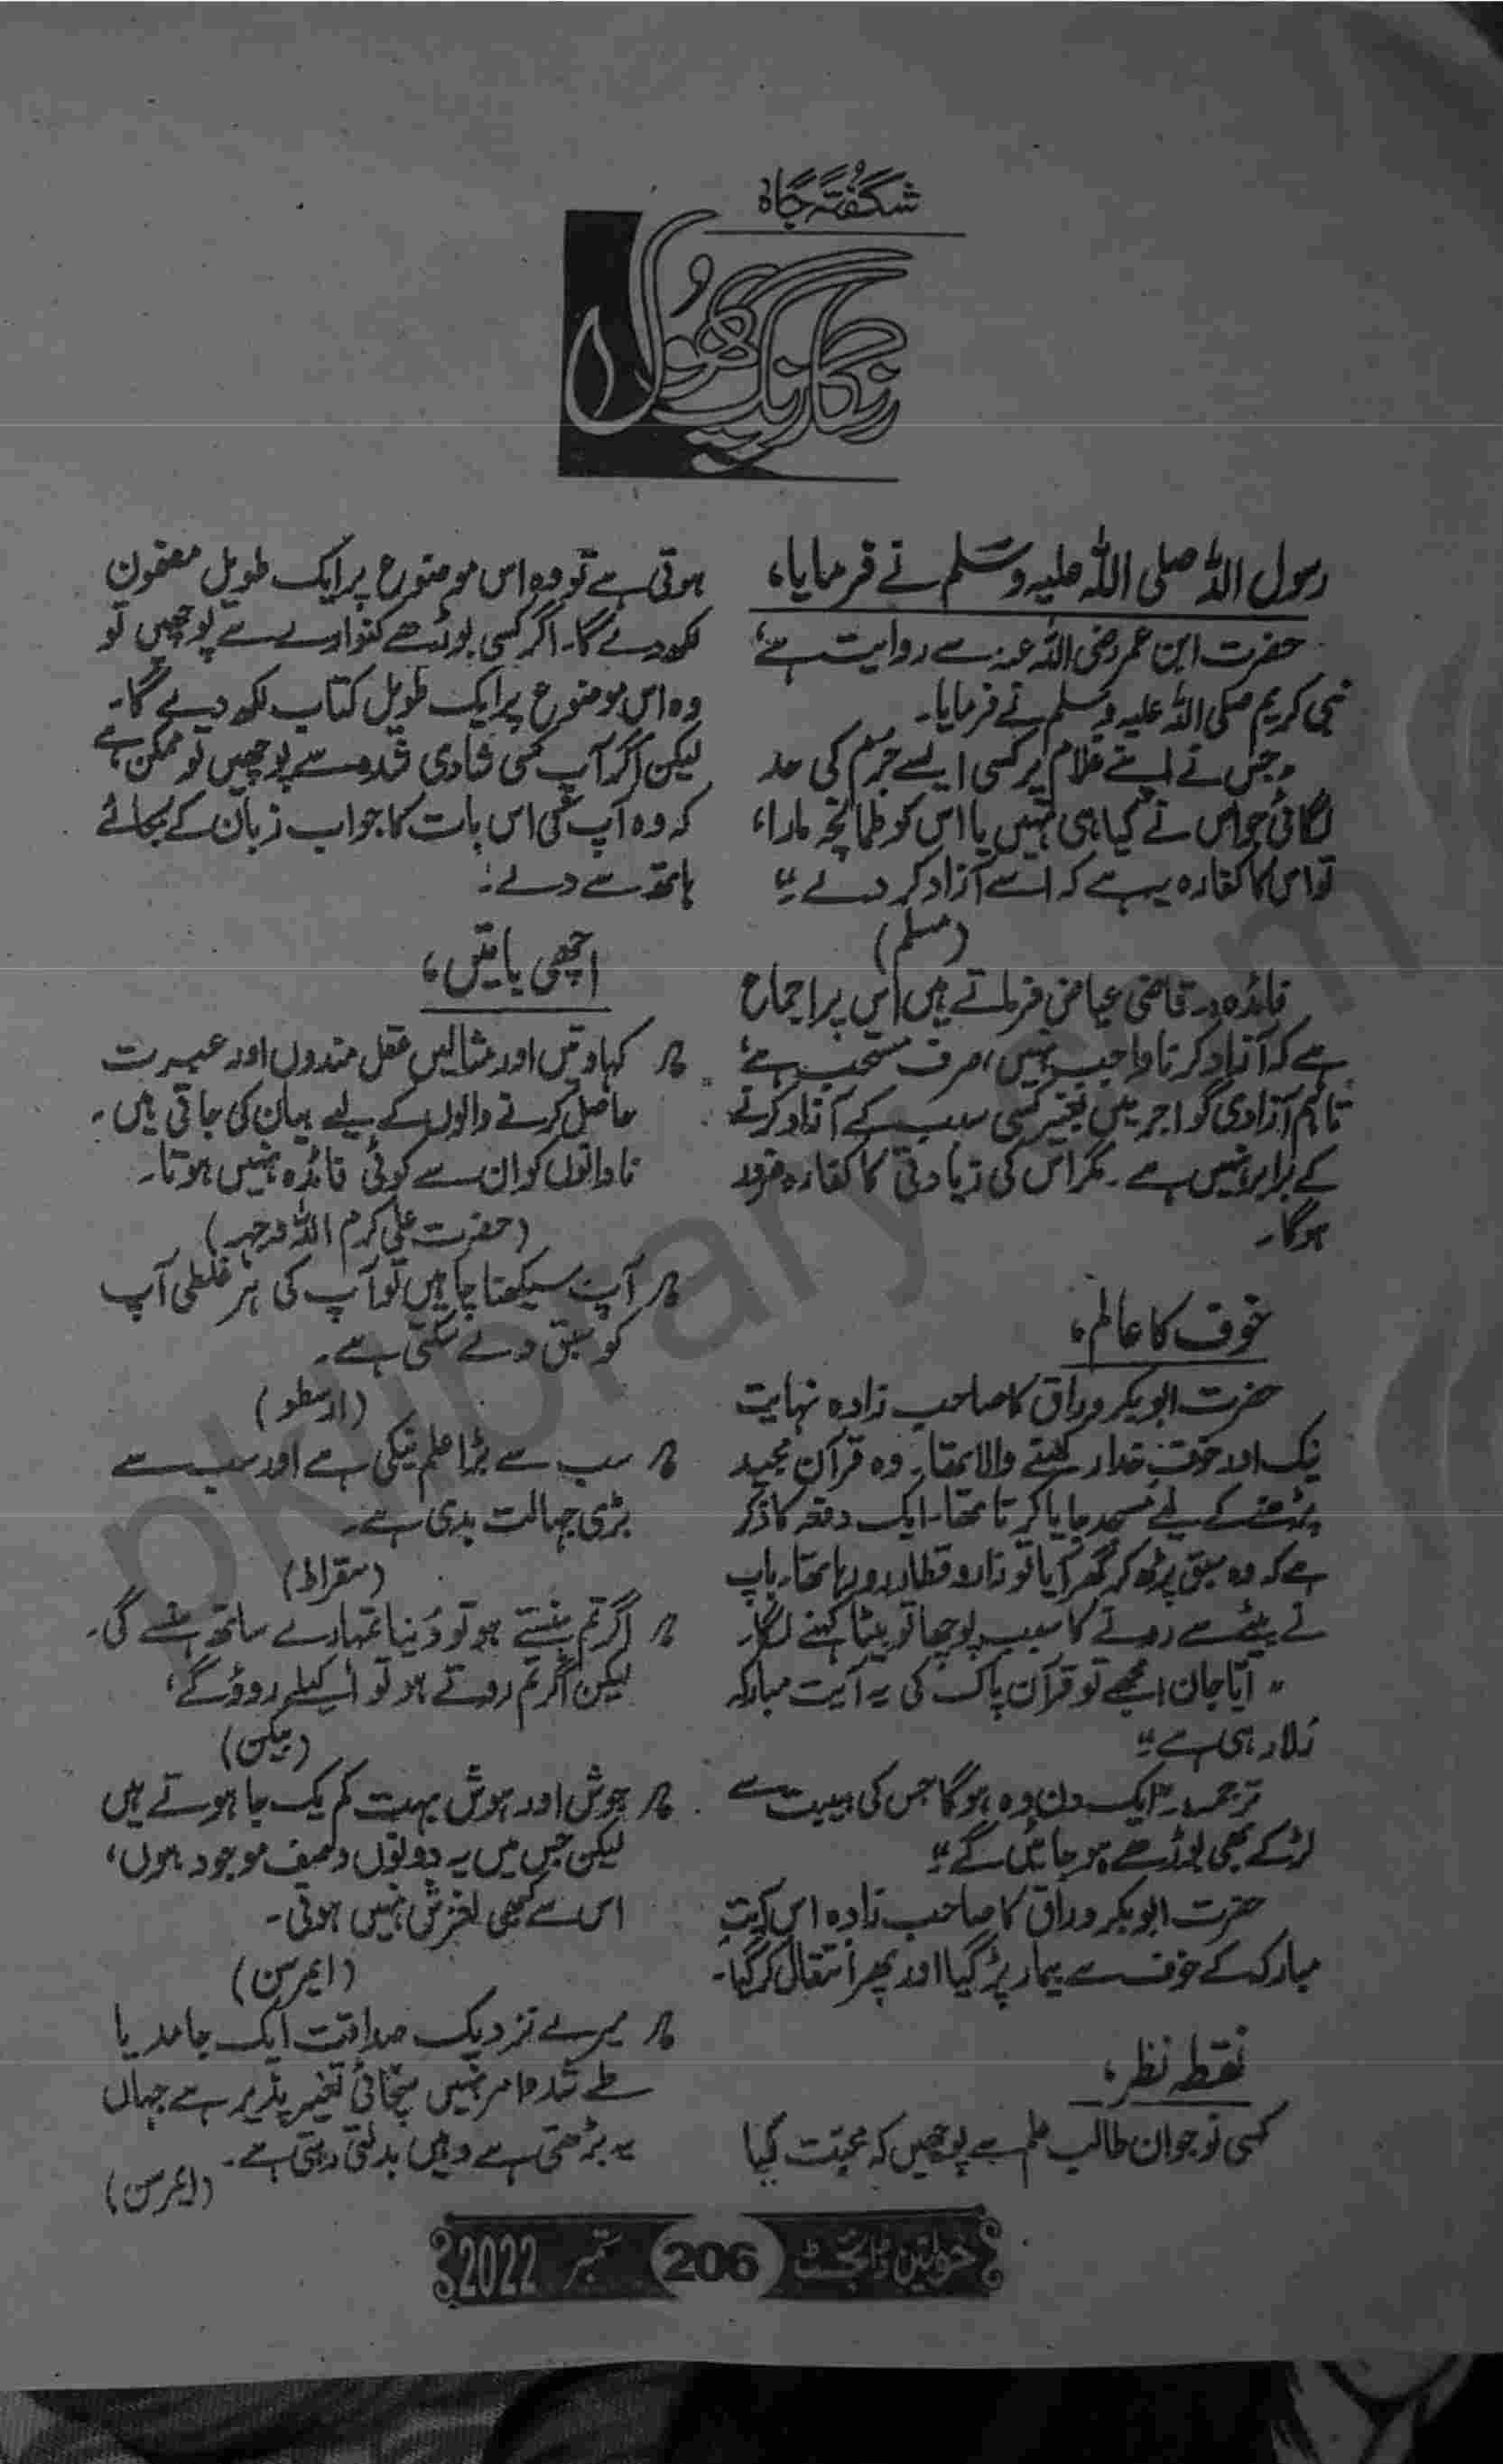 شگفتہ جاہ
رنگا رنگ پھول
رسول اللہ صلی اللہ علیہ وسلم نے فرمایا،
حضرت ابن عمر رضی اللہ عنہ سے روایت ہے،
نبی کریم صلی اللہ علیہ وسلم نے فرمایا۔
"جس نے اپنے غلام پر کسی ایسے جرم کی حد
لگائی جو اس نے کیا ہی نہیں یا اس کو طمانچہ مارا،
تو اس کا کفارہ یہ ہے کہ اسے آزاد کر دے۔"
(مسلم)
فائدہ:۔ قاضی عیاض فرماتے ہیں اس پر اجماع
ہے کہ آزاد کرنا واجب نہیں، صرف مستحب ہے،
تاہم آزادی گو اجر میں بغیر کسی سبب کے آزاد کرنے
کے برابر نہیں ہے۔ مگر اس کی زیادتی کا کفارہ ضرور
ہوگا۔
خوف کا عالم،
حضرت ابوبکر وراق کا صاحب زادہ نہایت
نیک اور خوف خدا رکھنے والا تھا۔ وہ قرآن مجید
پڑھنے کے لیے مسجد جایا کرتا تھا۔ ایک دفعہ کا ذکر
ہے کہ وہ سبق پڑھ کر گھر آیا تو زار و قطار رو رہا تھا۔ باپ
نے بیٹے سے رونے کا سبب پوچھا تو بیٹا کہنے لگا۔
"ابا جان! مجھے تو قرآن پاک کی یہ آیت مبارکہ
رلا رہی ہے"
ترجمہ:۔ "ایک دن وہ ہوگا جس کی ہیبت سے
لڑکے بھی بوڑھے ہو جائیں گے"
حضرت ابوبکر وراق کا صاحب زادہ اس آیت
مبارکہ کے خوف سے بیمار پڑ گیا اور پھر انتقال کر گیا۔
نقطہ نظر،
کسی نوجوان طالب علم سے پوچھیں کہ محبت کیا
ہوتی ہے تو وہ اس موضوع پر ایک طویل مضمون
لکھ دے گا۔ اگر کسی بوڑھے کنوارے سے پوچھیں تو
وہ اس موضوع پر ایک طویل کتاب لکھ دے گا۔
لیکن اگر آپ کسی شادی شدہ سے پوچھیں تو ممکن ہے
کہ وہ آپ کی اس بات کا جواب زبان کے بجائے
ہاتھ سے دے۔
اچھی باتیں،
کہاوتیں اور مثالیں عقل مندوں اور عبرت
حاصل کرنے والوں کے لیے بیان کی جاتی ہیں۔
نادانوں کو ان سے کوئی فائدہ نہیں ہوتا۔
(حضرت علی کرم اللہ وجہہ)
آپ سیکھنا چاہیں تو آپ کی ہر غلطی آپ
کو سبق دے سکتی ہے۔
(ارسطو)
سب سے بڑا علم نیکی ہے اور سب سے
بڑی جہالت بدی ہے۔
(سقراط)
اگر تم ہنستے ہو تو دنیا تمہارے ساتھ ہنسے گی۔
لیکن اگر تم روتے ہو تو اکیلے روؤ گے،
(بیکن)
جوش اور ہوش بہت کم یک جا ہوتے ہیں
لیکن جس میں یہ دونوں وصف موجود ہوں،
اس سے کبھی لغزش نہیں ہوتی۔
(ایمرسن)
میرے نزدیک صداقت ایک جامد یا
طے شدہ امر نہیں سچائی تغیر پذیر ہے جہاں
یہ بڑھتی ہے وہیں بدلتی رہتی ہے۔
(ایمرسن)
خواتین ڈائجسٹ 206 ستمبر 2022